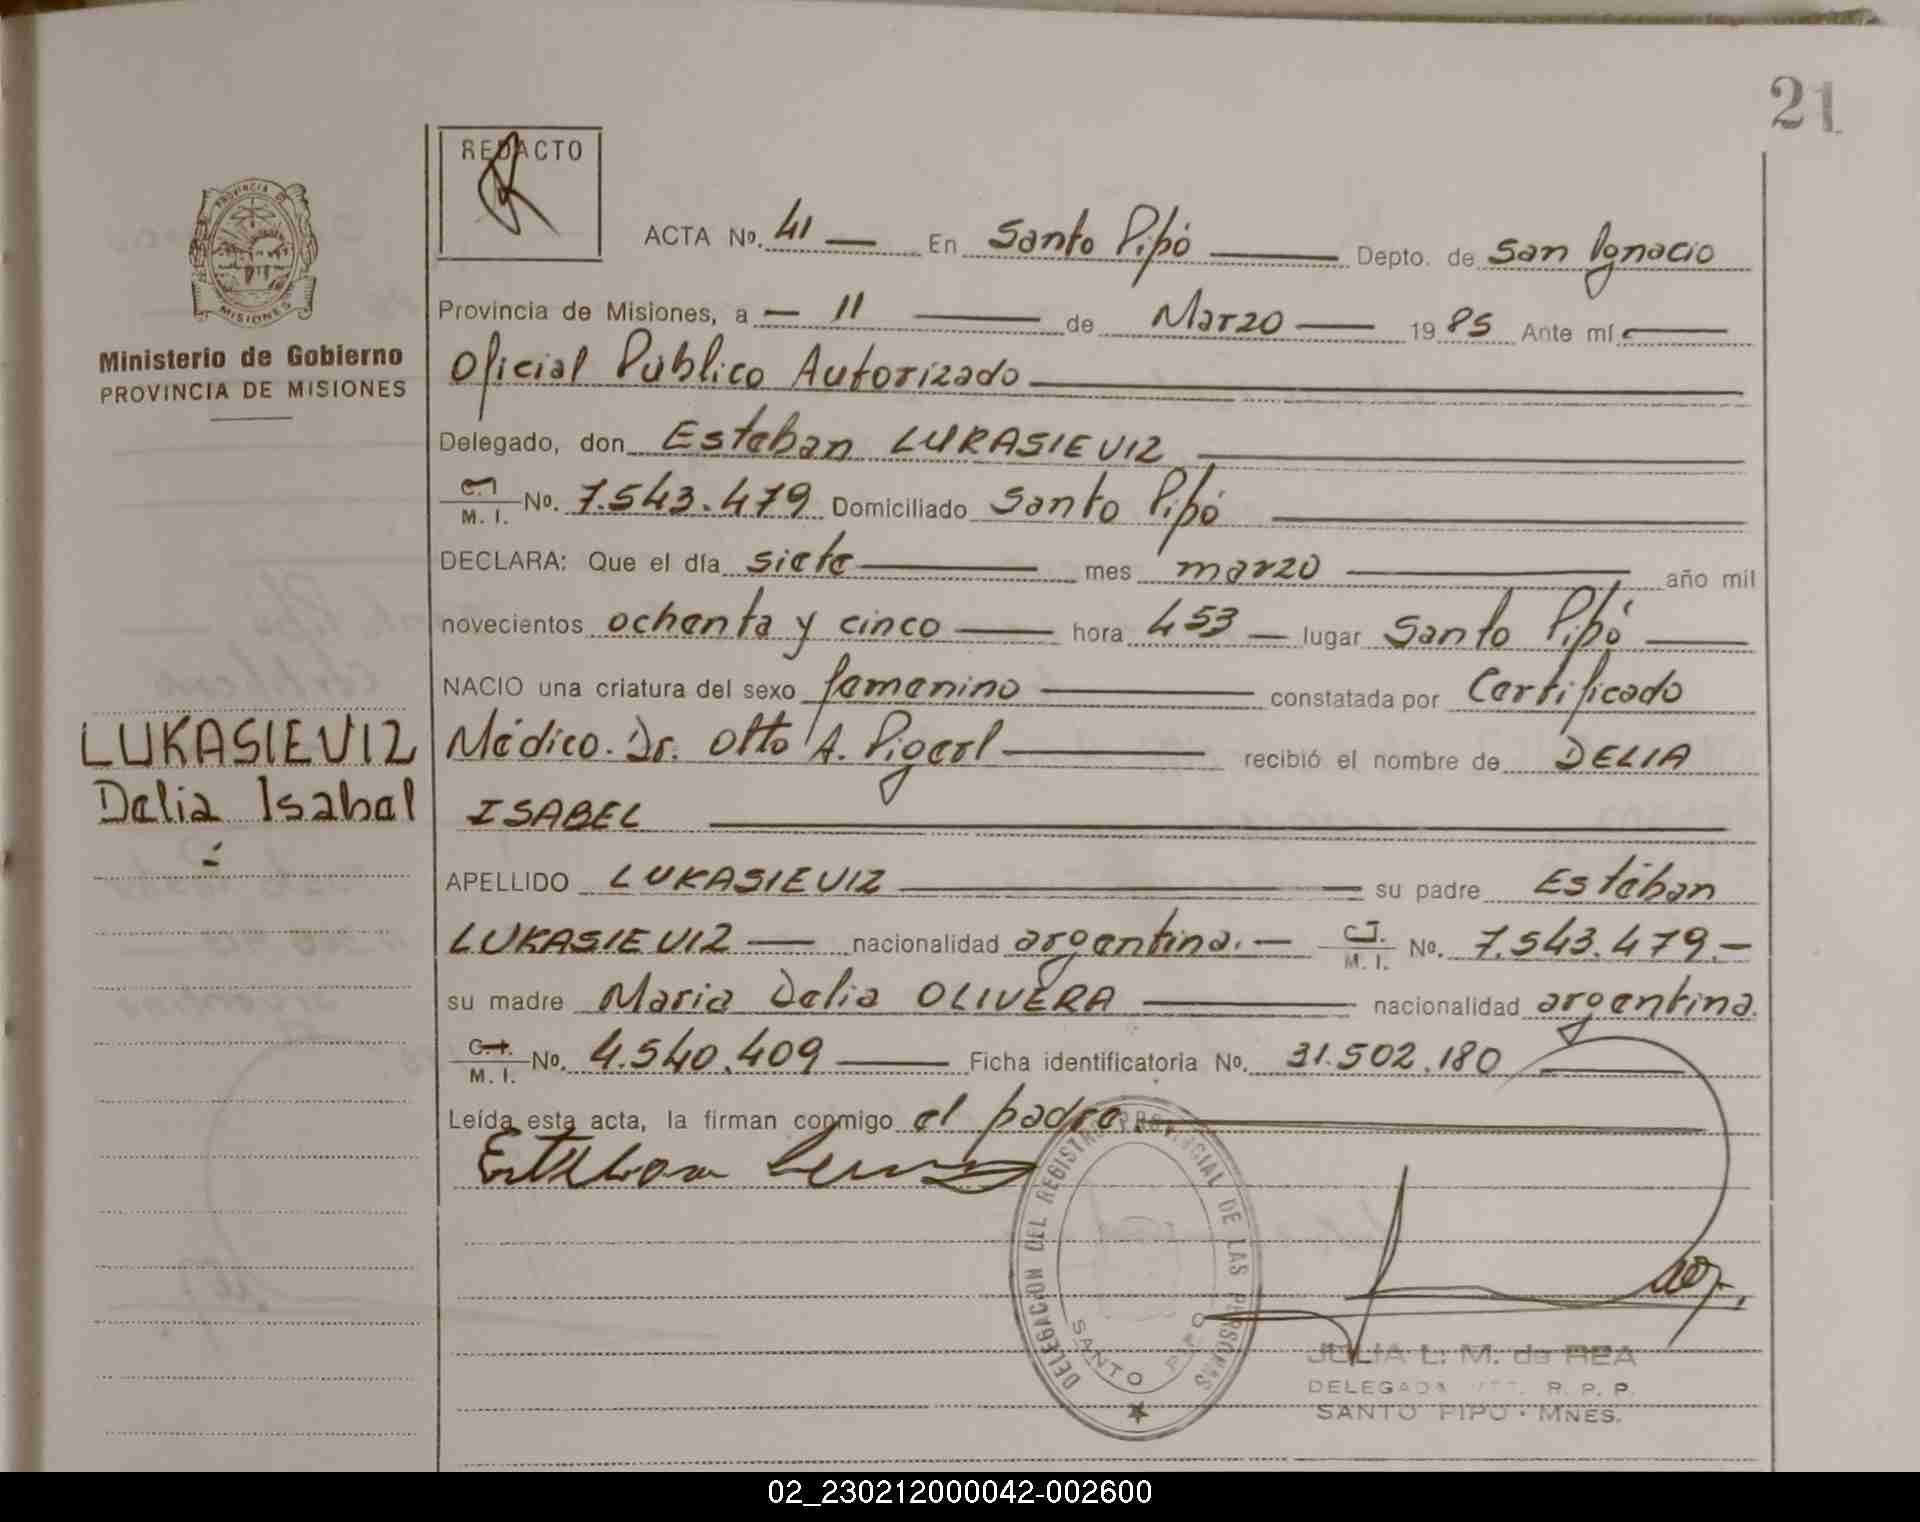 21
REDACTO
ACTA Nº. 41 — En Santo Pipó — Depto. de San Ignacio
Provincia de Misiones, a — 11 — de Marzo — 1985 Ante mí —
Ministerio de Gobierno
PROVINCIA DE MISIONES
PROVINCIA DE
MISIONES
Oficial Público Autorizado —
Delegado, don Esteban LUKASIEVIZ —
C.I. M. I. Nº. 7.543.479 Domiciliado Santo Pipó —
DECLARA: Que el día siete — mes marzo — año mil
novecientos ochenta y cinco — hora 453 — lugar Santo Pipó —
NACIO una criatura del sexo femenino — constatada por Certificado
LUKASIEVIZ
Delia Isabel
Médico. Dr. Otto A. Pigerl — recibió el nombre de DELIA
ISABEL —
APELLIDO LUKASIEVIZ — su padre Estéban
LUKASIEVIZ — nacionalidad argentina. — C.I. M. I. Nº. 7.543.479.—
su madre Maria Delia OLIVERA — nacionalidad argentina.
C.I. M. I. Nº. 4.540.409 — Ficha identificatoria No. 31.502.180 —
Leída esta acta, la firman conmigo el padre. —
Esteban
DELEGACION DEL REGISTRO PROVINCIAL DE LAS PERSONAS
SANTO PIPO
JULIA L. M. de REA
DELEGADA R. P. P.
SANTO PIPO - MNES.
02_230212000042-002600